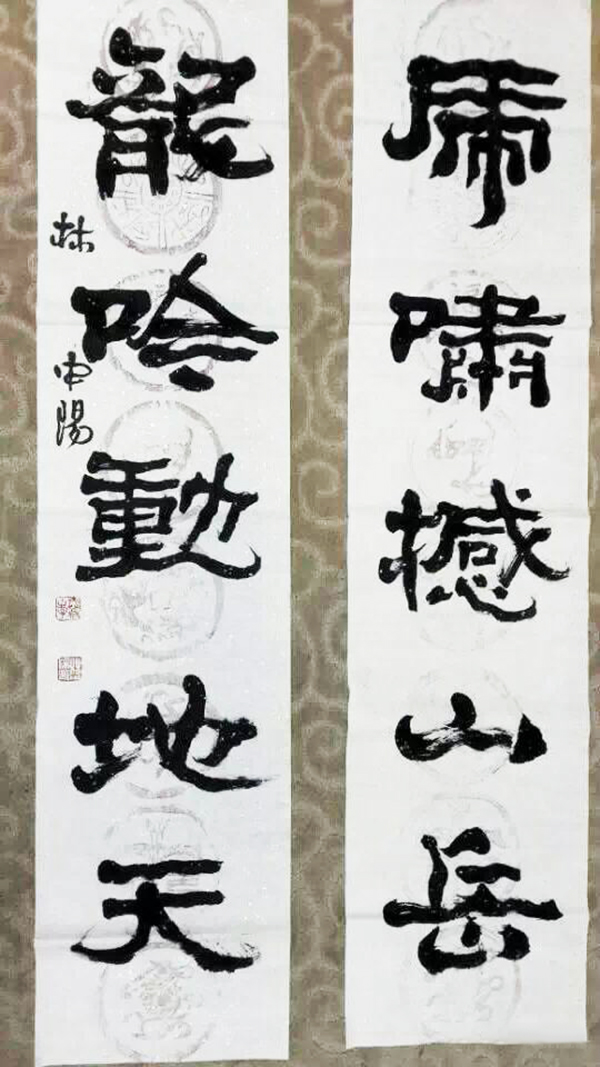 虎嘯撼山岳
龍吟動地天
林申陽